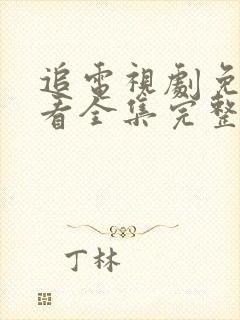 追電視劇免
看全集完整
丁林